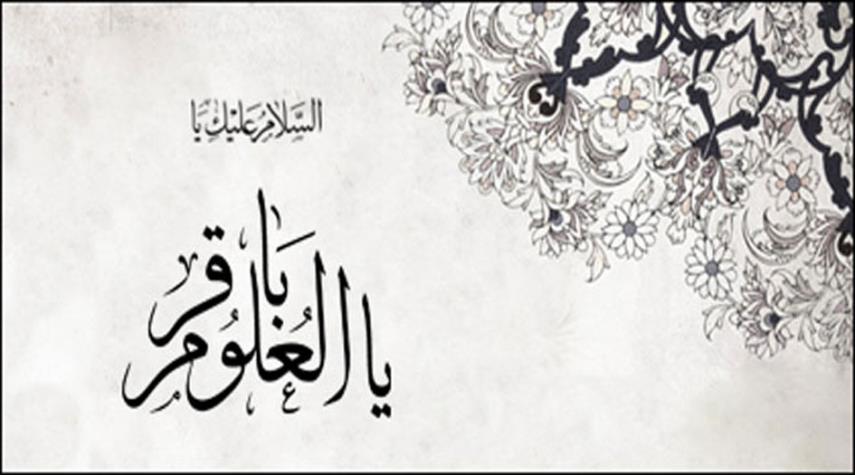 السَّلَامُ عَلَيْكَ يَا
يا باقر العُلُوم